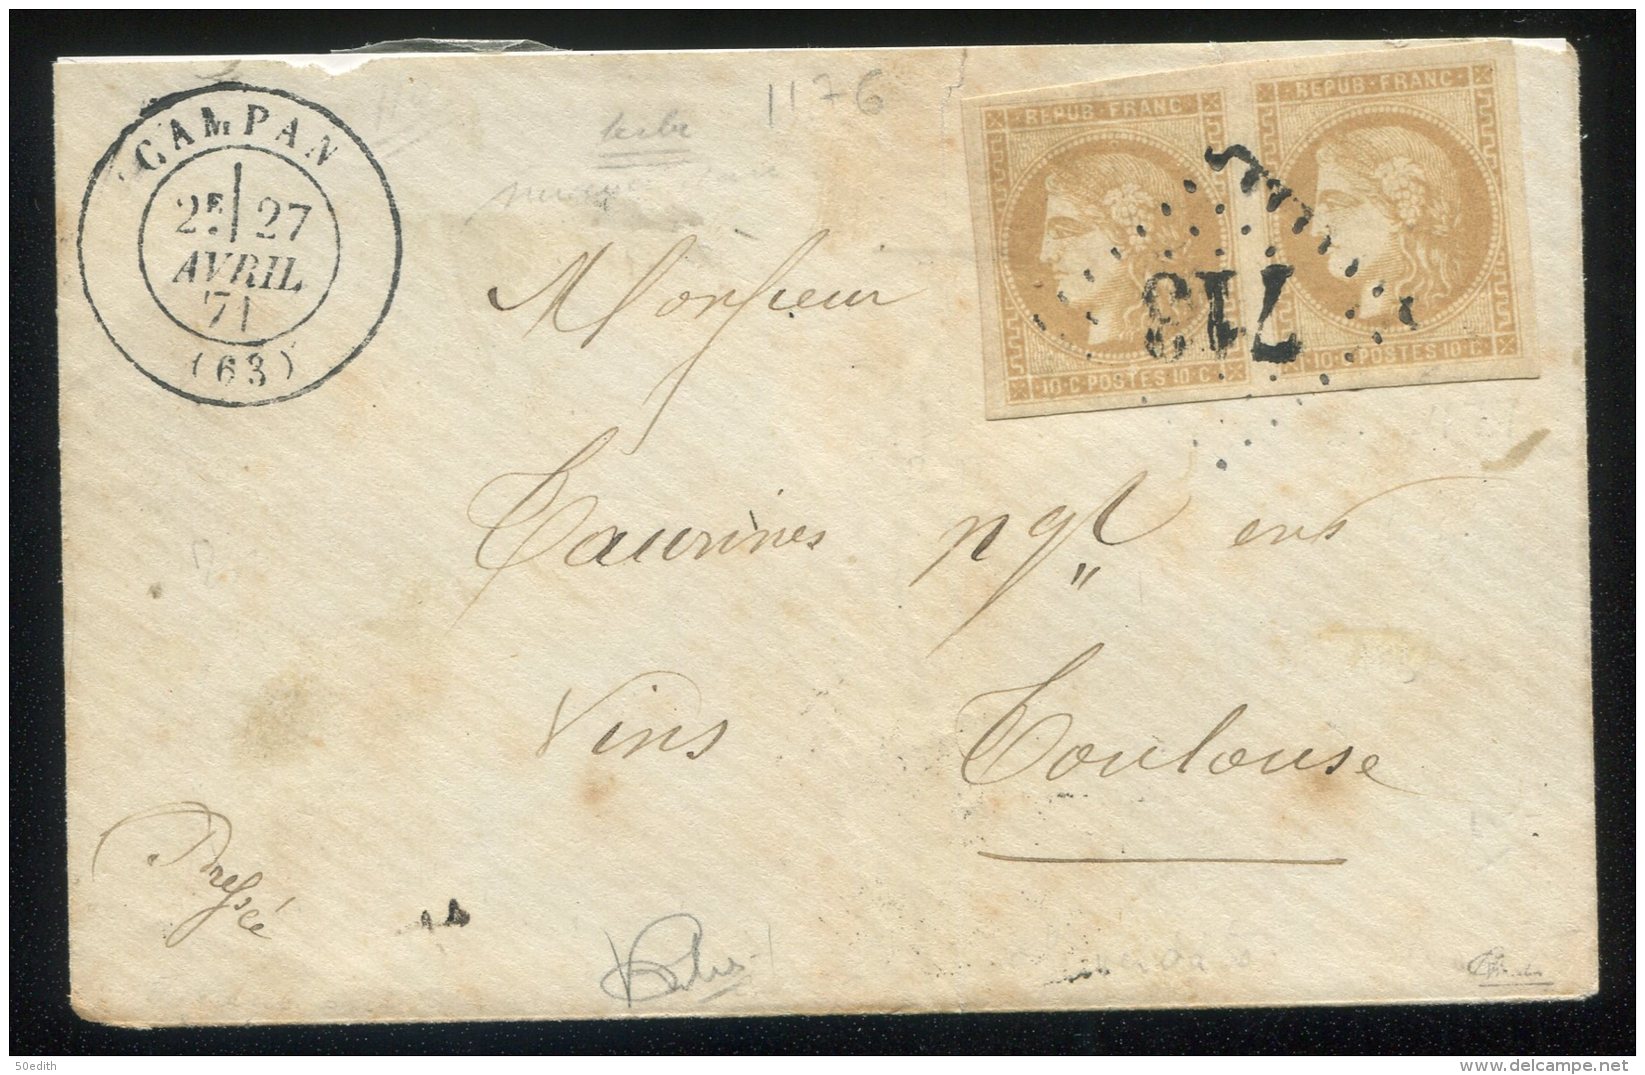 CAMPAN
2E 27
AVRIL
71
(63)
1176
REPUB·FRANC
10·C·POSTES 10·C
REPUB·FRANC
10·C·POSTES 10·C
713
Monsieur
Taurines ngt ens
Vins Toulouse
Pressée
50edith
www.delcampe.net